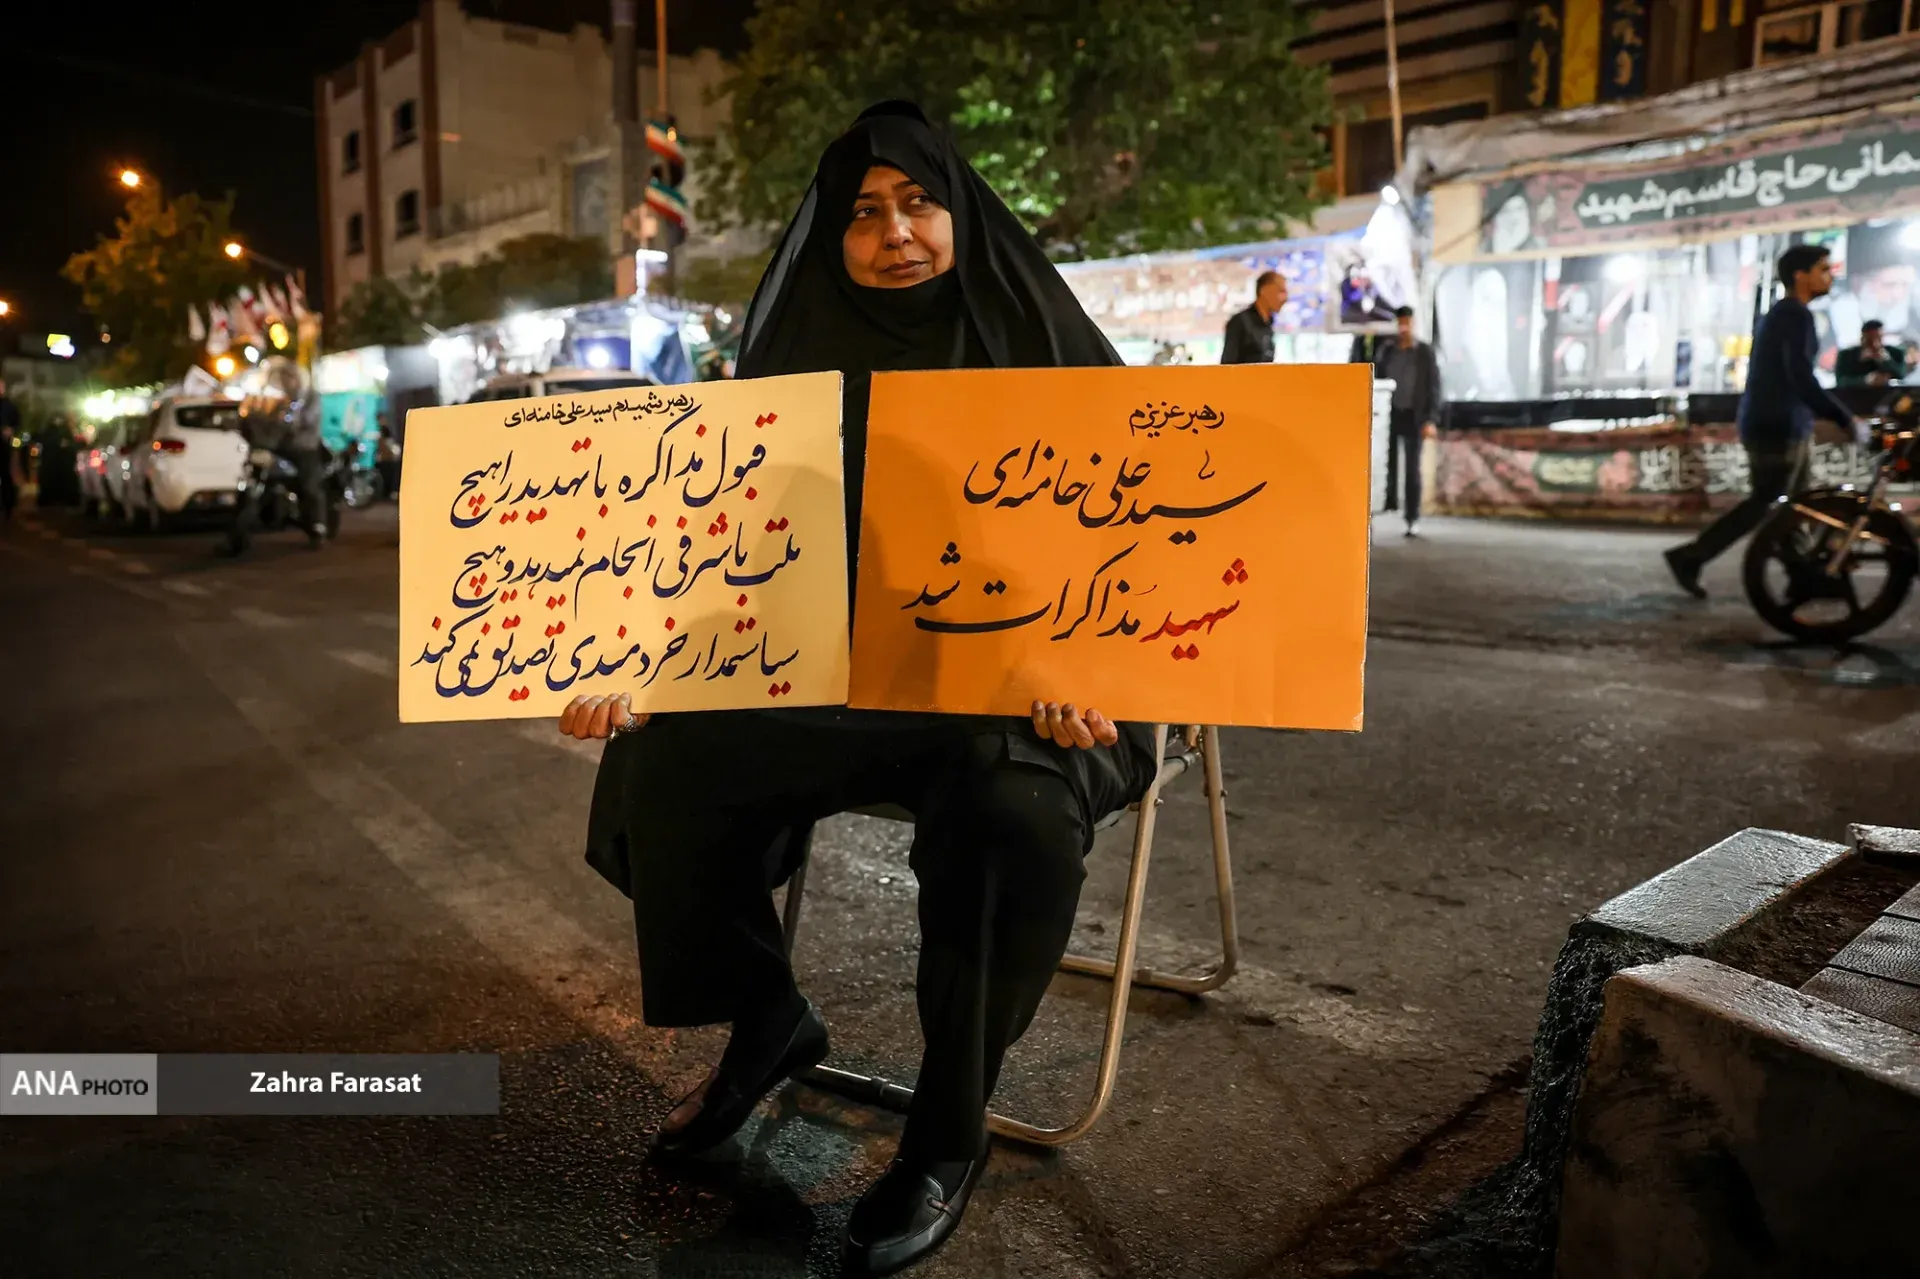 رهبر شهیدم سید علی خامنه‌ای
قبول مذاکره با تهدید را هیچ
ملت باشرفی انجام نمیدهد و هیچ
سیاستمدار خردمندی تصدیق نمی کند
رهبر عزیزم
سید علی خامنه‌ای
شهید مذاکرات شد
مانی حاج قاسم شهید
ANA PHOTO
Zahra Farasat